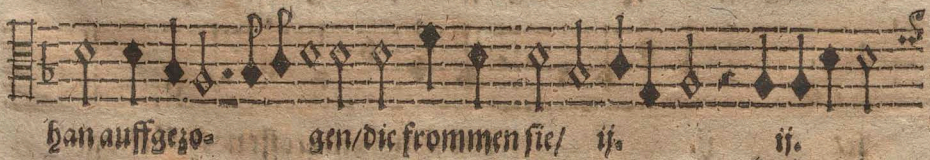 han auffgezo⸗ gen/die frommen sie/ ij. ij.